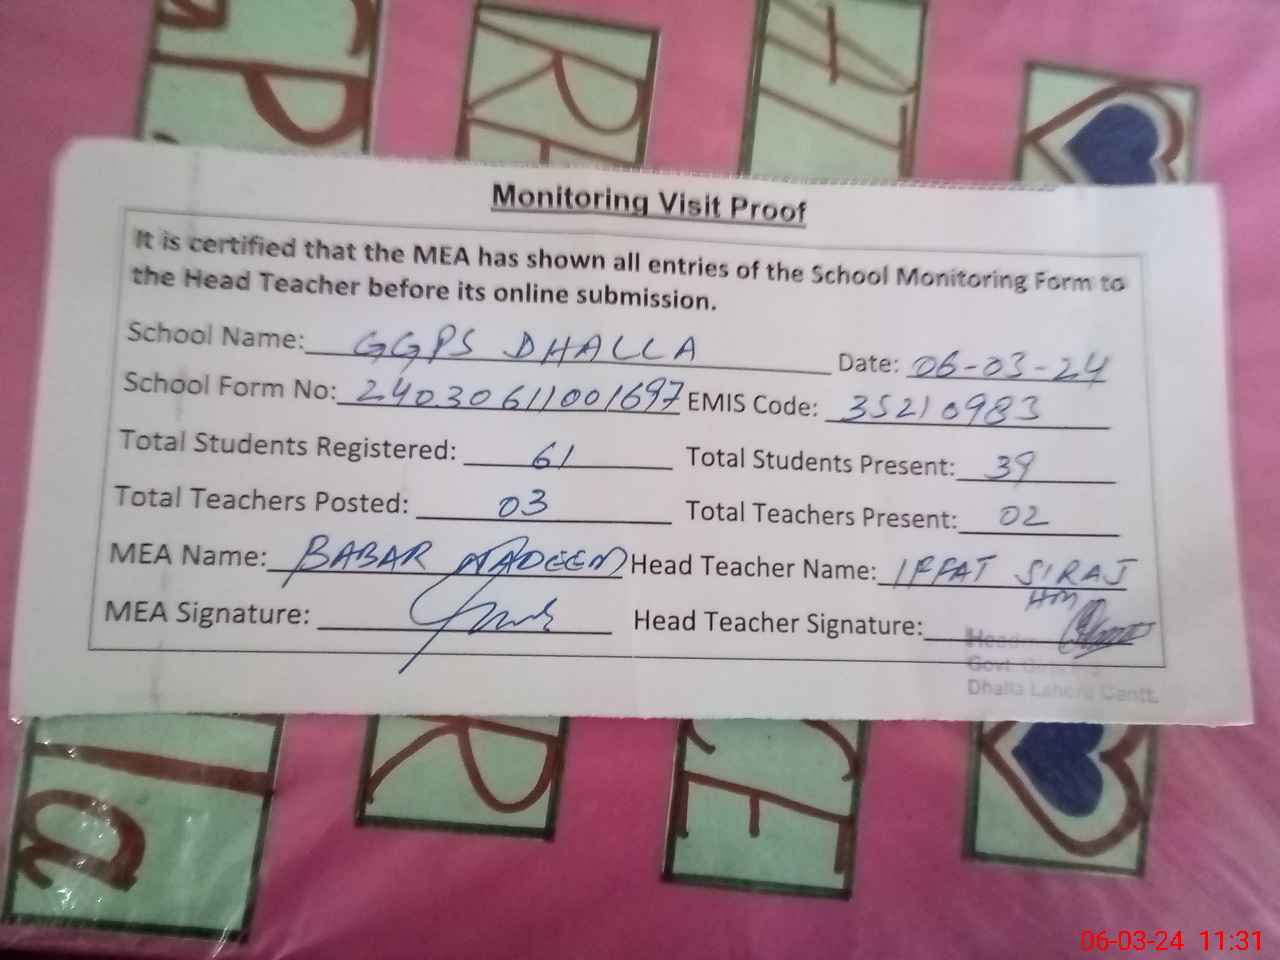 Monitoring Visit Proof
It is certified that the MEA has shown all entries of the School Monitoring Form to
the Head Teacher before its online submission.
School Name: GGPS DHALLA Date: 06-03-24
School Form No: 24030611001697 EMIS Code: 35210983
Total Students Registered: 61 Total Students Present: 39
Total Teachers Posted: 03 Total Teachers Present: 02
MEA Name: BABAR NADEEM Head Teacher Name: IFFAT SIRAJ
MEA Signature: Head Teacher Signature:
Govt
Dhalla Lahore Cantt.
06-03-24 11:31